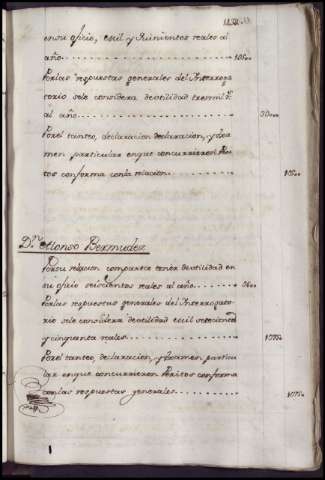 en su oficio, es mil y Quinientos reales al
año . . . 1500
Por las respuestas generales del Interroga
torio sele considera de utilidad tres mil rs.
al año . . . 3000
Por el tanteo, declaracion declaracion, y Exa
men particular en que concurrieron Peri
tos conforma con la relacion . . . 1500
Dn. Alonso Bermudez
Por su relacion comparece tener de utilidad en
su oficio seiscientos reales al año . . . 0600
Por las respuestas generales del Interrogato
rio sele considera de utilidad es mil setecientos
y cinquanta reales . . . 1075
Por el tanteo, declaracion, y Examen particu
lar en que concurrieron Peritos conforma
con las respuestas generales . . .